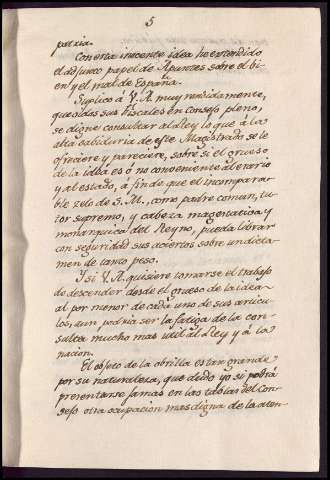 5
patria.
Con esta inocente idea he extendido
el adjunto papel de Apuntes sobre el bi-
en y el mal de España.
Suplico à V.A. muy rendidamente,
que oidos sus Fiscales en Consejo pleno,
se digne consultar al Rey lo que à la
alta sabiduria de este Magistrado se le
ofreciere y pareciere, sobre si el grueso
de la idea es ó no conveniente al erario
y al estado, à fin de que el incompara-
ble zelo de S.M., como padre comun, tu-
tor supremo, y cabeza magestatica y
monarquica del Reyno, pueda librar
con seguridad sus aciertos sobre un dicta-
men de tanto peso.
Y si V.A. quisiere tomarse el trabajo
de descender desde el grueso de la idea
al por menor de cada uno de sus articu-
los, aun podria ser la fatiga de la con-
sulta mucho mas util al Rey y à la
nacion.
El objeto de la obrilla es tan grande
por su naturaleza, que dudo yo si podrá
presentarse jamas en las tablas del Con-
sejo otra ocupacion mas digna de la aten-